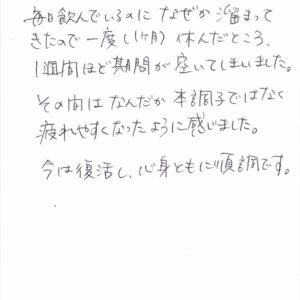 毎日飲んでいるのになぜか溜まって
きたので一度(1ヶ月)休んだところ、
1週間ほど期間が空いてしまいました。
その間はなんだか本調子ではなく
疲れやすくなったように感じました。
今は復活し、心身ともに順調です。